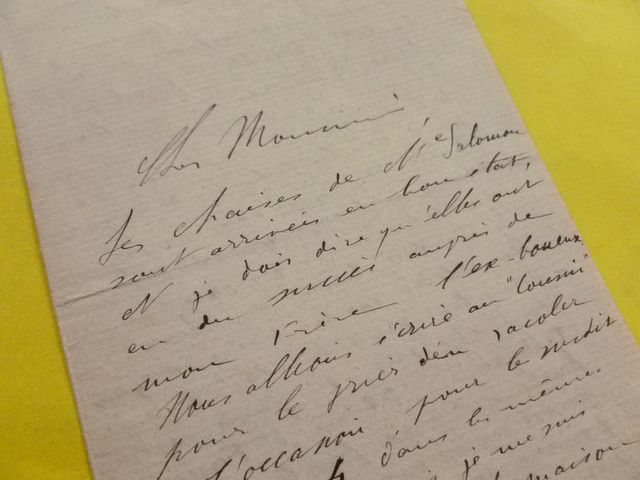 Cher Monsieur
Les chaises de Me Salomon
sont arrivées en bon état,
et je dois dire qu'elles ont
eu du succès auprès de
mon Frère l'ex-boxeur
Nous allons écrire au "Cousin"
pour le prier d'en racoler
l'occasion pour le susdit
dans les mêmes
je me suis
maison